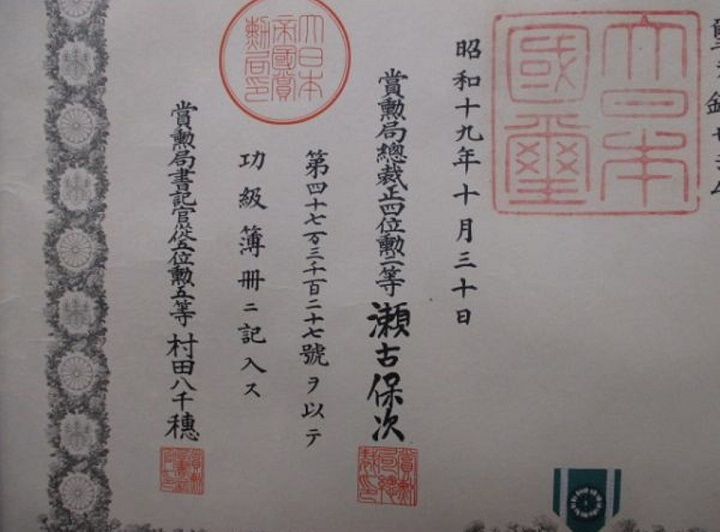 大日本國璽
昭和十九年十月三十日
賞勲局總裁正四位勲二等 瀬古保次
第四十七万三千百二十七號ヲ以テ
功級簿冊ニ記入ス
大日本帝國賞勲局印
賞勲局書記官從五位勲五等 村田八千穗